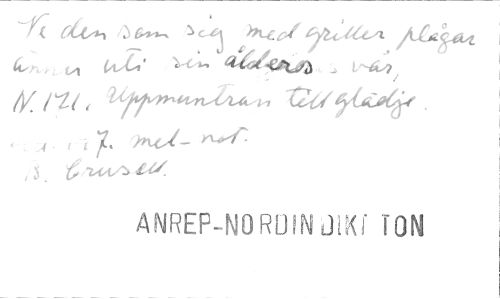 Ve den som sig med griller plågar
ännu uti sin ålders vår,
N. 171. Uppmuntran till glädje.
7. mel-not.
B. Crusell.
ANREP-NORDIN DIKT TON